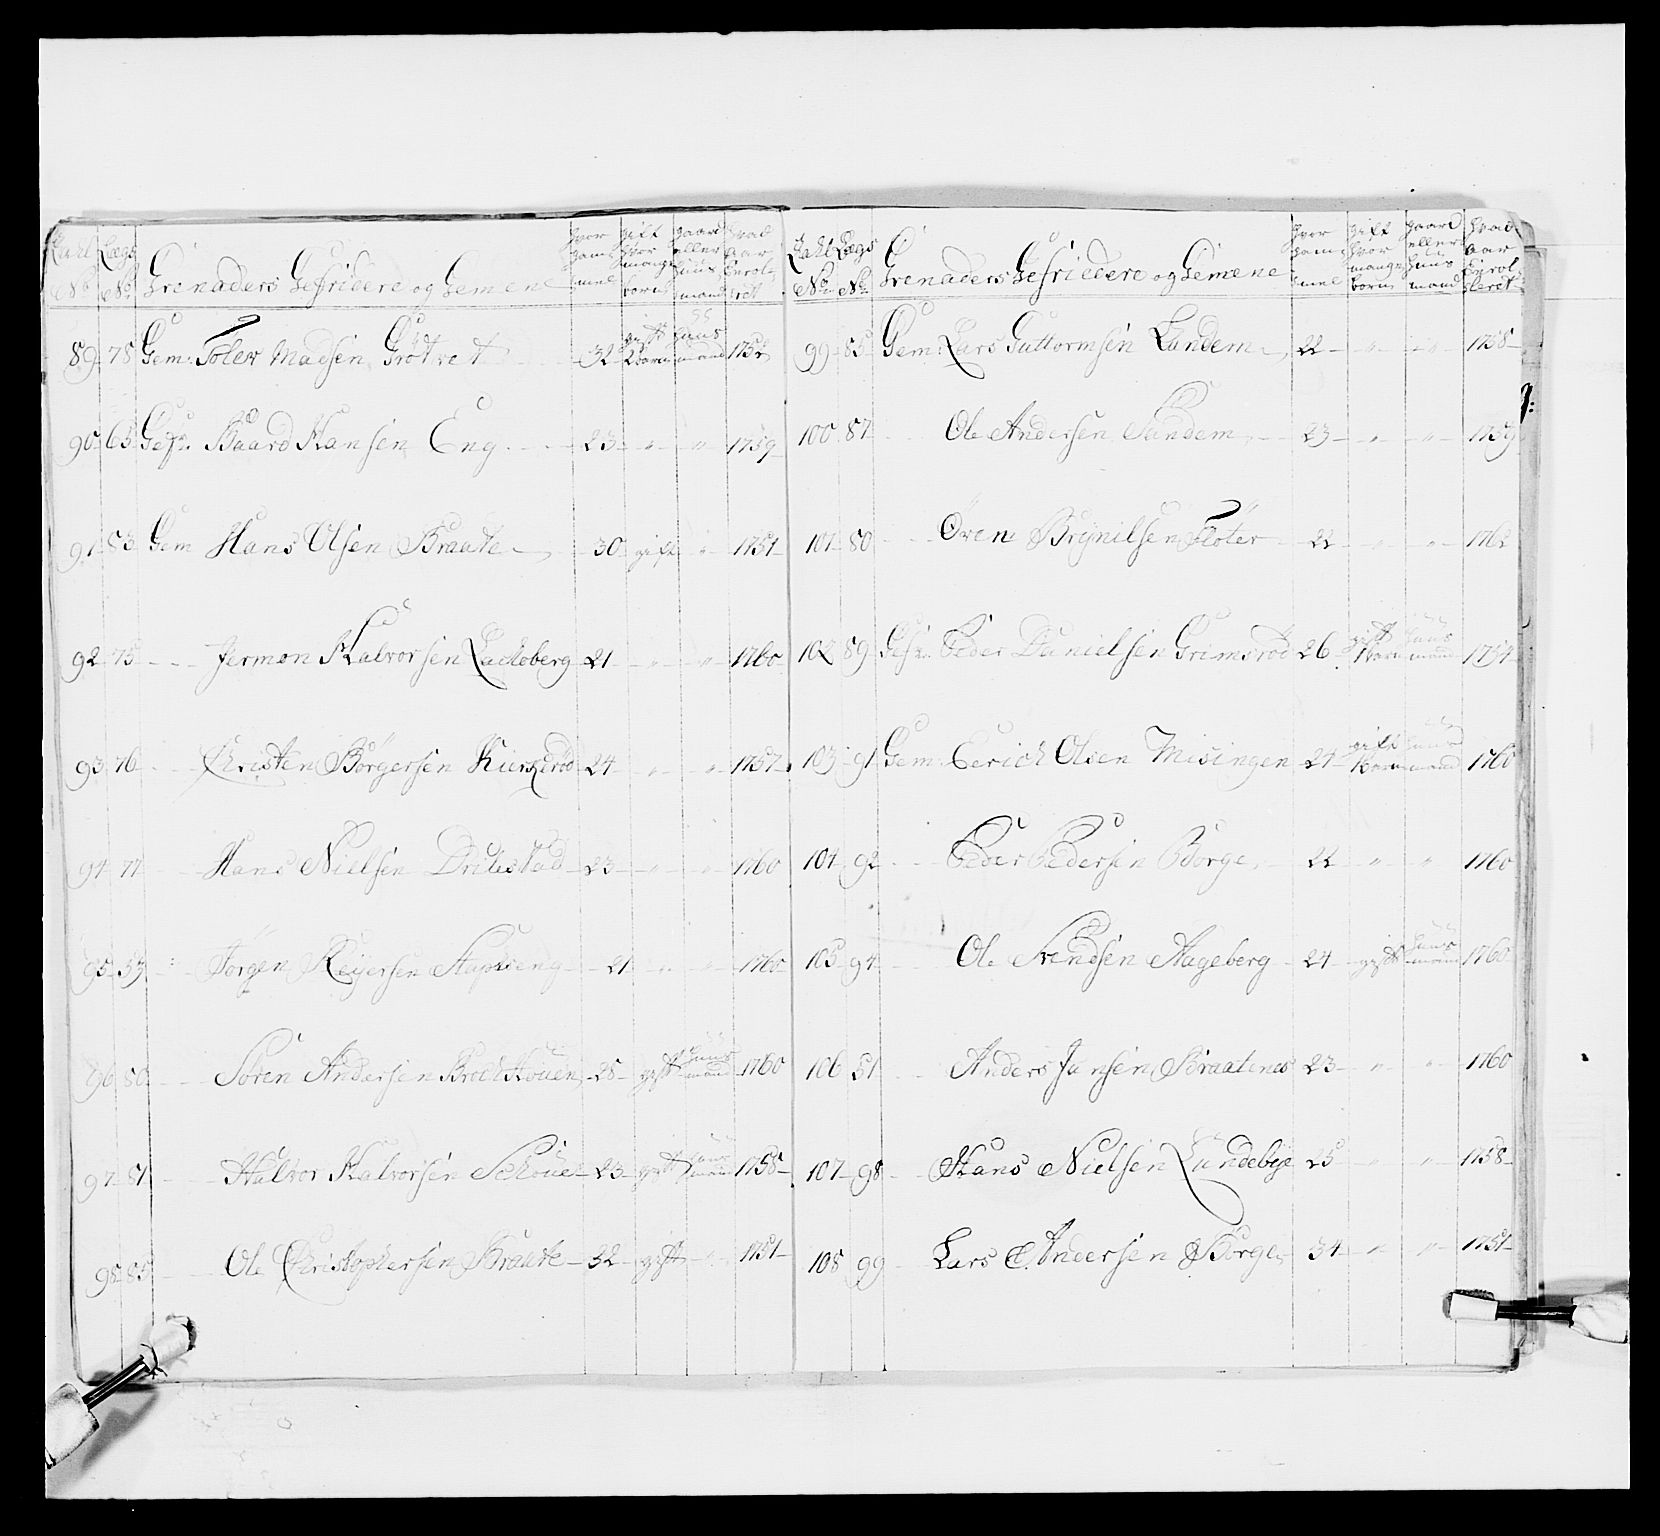 Tahl No Lægs No Grenaders Gefriedere og Gemene hvor gamel gift hvor mange born gaard eller huus mand hvad aar Enrolleret
89 78 Gem: Toler Madsen Grötvet 32 gift 2 born huus mand 1752
90 63 Gefr. Baard Hansen Eng 23 " " 1759
91 83 Gem Hans Olsen Braate 30 gift " 1751
92 75 Jermon Halvorsen Lackeberg 21 " " 1760
93 76 Christen Börgersen Kierseröd 24 " " 1757
94 77 Hans Nielsen Drilestad 23 " " 1760
95 53 Jörgen Reyersen Stapseng 21 " " 1760
96 80 Sören Andersen Brochhouen 28 gift huus mand 1760
97 81 Halvor Halvorsen Schouer 23 gift huus mand 1758
98 85 Ole Christophersen Braate 32 gift " 1751
Tahl No Lægs No Grenaders Gefriedere og Gemene hvor gamel gift hvor mange born gaard eller huus mand hvad aar Enrolleret
99 85 Gem: Lars Guttormsen Landem 22 " " 1758
100 87 Ole Andersen Sandem 23 " " 1759
101 80 Öven Brynilsen Flöter 22 " " 1762
102 89 Gefr. Peder Danielsen Grimsröd 26 gift 1 born huus mand 1754
103 91 Gem: Eerich Olsen Misingen 24 gift 1 born huus mand 1760
104 92 Peder Pedersen Borge 22 " " 1760
105 94 Ole Svendsen Aageberg 24 gift huus mand 1760
106 51 Anders Jansen Braatenes 23 " " 1760
107 98 Hans Nielsen Lundebye 25 " " 1758
108 99 Lars Andersen Borge 34 " " 1751